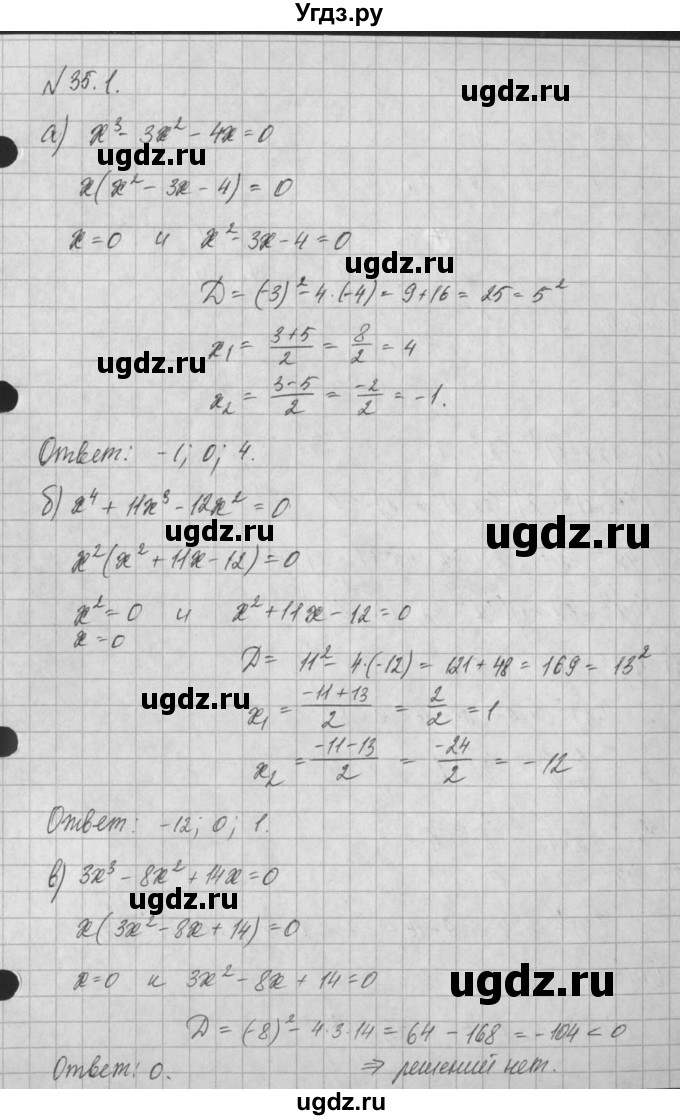 Угдз.ру
№ 35.1.
ugdz.ru
а) x³ - 3x² - 4x = 0
ugdz.ru
x(x² - 3x - 4) = 0
x = 0 и x² - 3x - 4 = 0
ugdz.ru
D = (-3)² - 4·(-4) = 9 + 16 = 25 = 5²
x₁ = (3+5)/2 = 8/2 = 4
ugdz.ru
x₂ = (3-5)/2 = -2/2 = -1.
Ответ: -1; 0; 4.
б) x⁴ + 11x³ - 12x² = 0
ugdz.ru ugdz.ru
x²(x² + 11x - 12) = 0
x² = 0 и x² + 11x - 12 = 0
x = 0
D = 11² - 4·(-12) = 121 + 48 = 169 = 13²
ugdz.ru
x₁ = (-11+13)/2 = 2/2 = 1
x₂ = (-11-13)/2 = -24/2 = -12
Ответ: -12; 0; 1.
в) 3x³ - 8x² + 14x = 0
ugdz.ru
x(3x² - 8x + 14) = 0
x = 0 и 3x² - 8x + 14 = 0
ugdz.ru
D = (-8)² - 4·3·14 = 64 - 168 = -104 < 0
Ответ: 0. ⇒ решений нет.
ugdz.ru